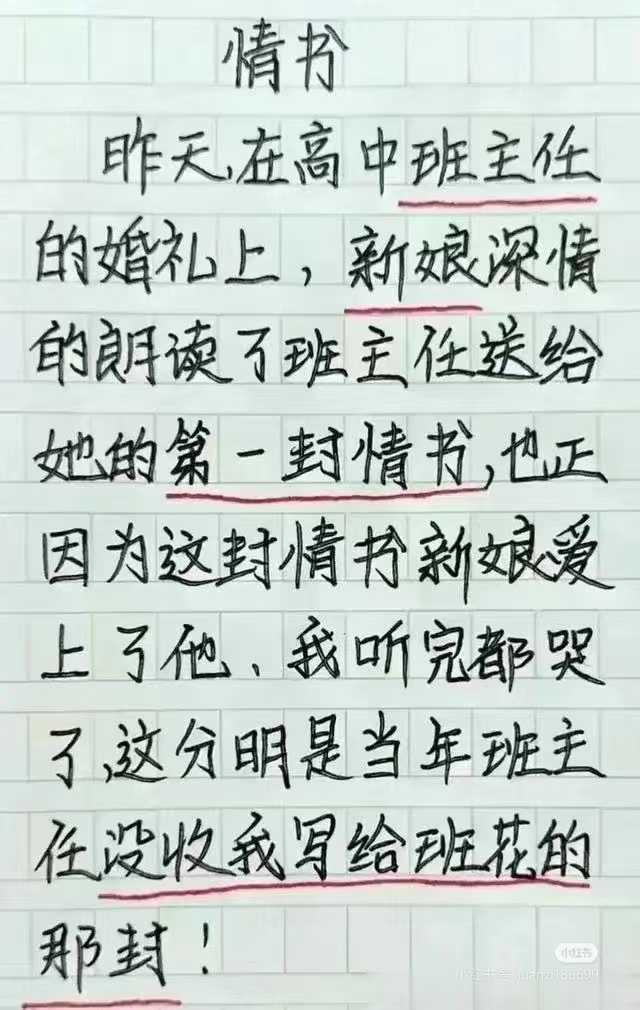 情书
昨天,在高中班主任
的婚礼上，新娘深情
的朗读了班主任送给
她的第一封情书,也正
因为这封情书新娘爱
上了他、我听完都哭
了,这分明是当年班主
任没收我写给班花的
那封！
小红书